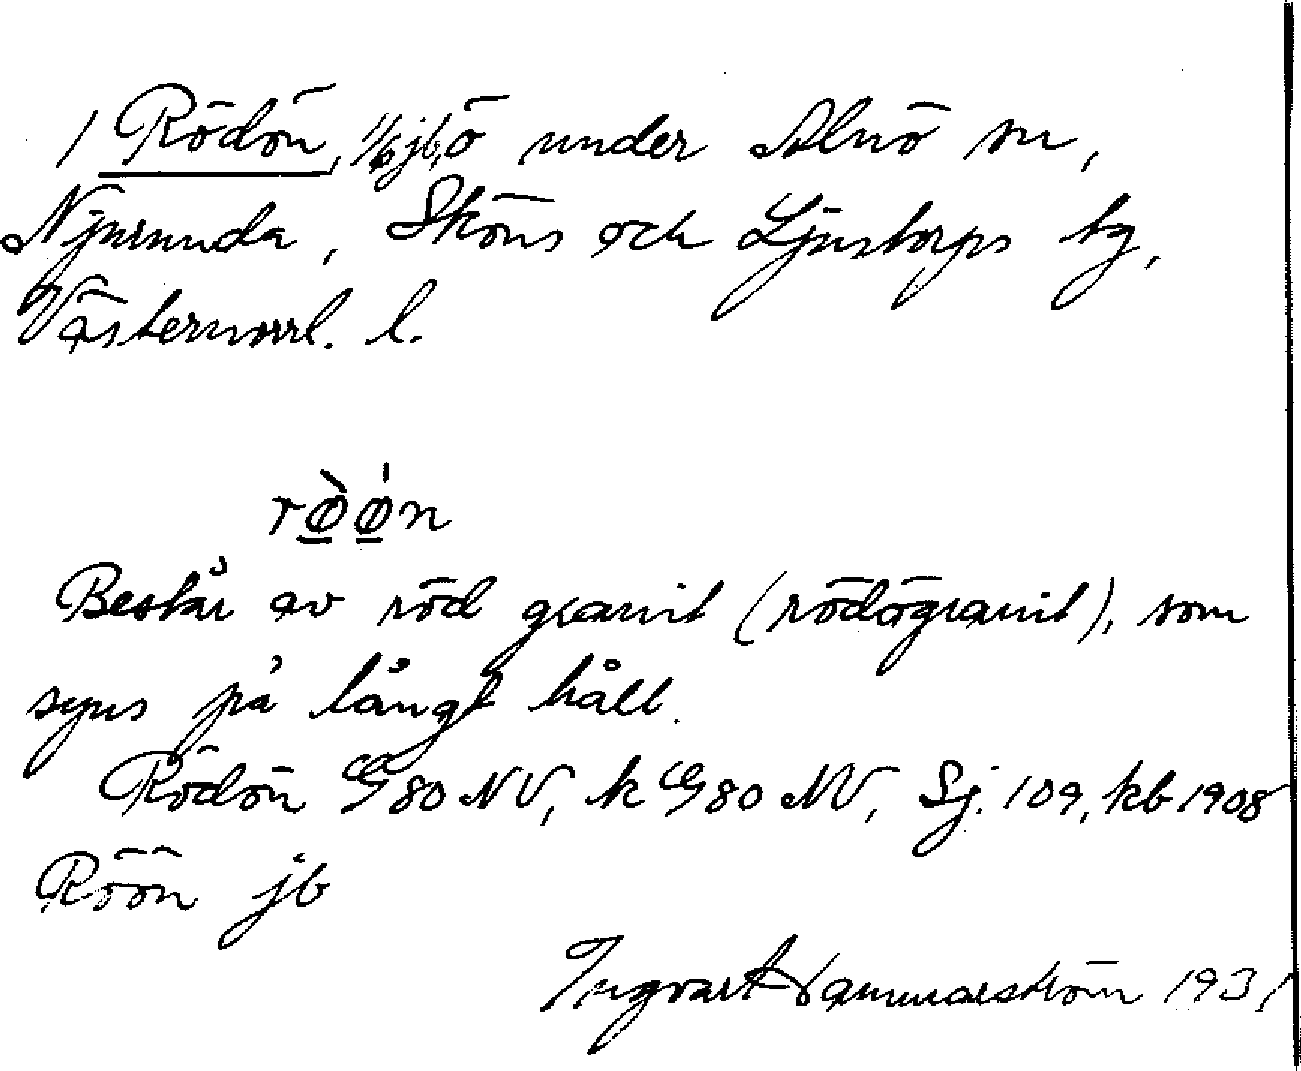 1 Rödön, 1/6 jb, ö under Alnö sn,
Njurunda, Sköns och Ljustorps tg,
Västernorrl. l.
rø̀ø̍n
Består av röd granit (rödögranit), som
syns på långt håll.
Rödön G 80 NV, k G 80 NV, Sj. 109, kb 1908
Röön jb
Ingvart Hammarström 1931